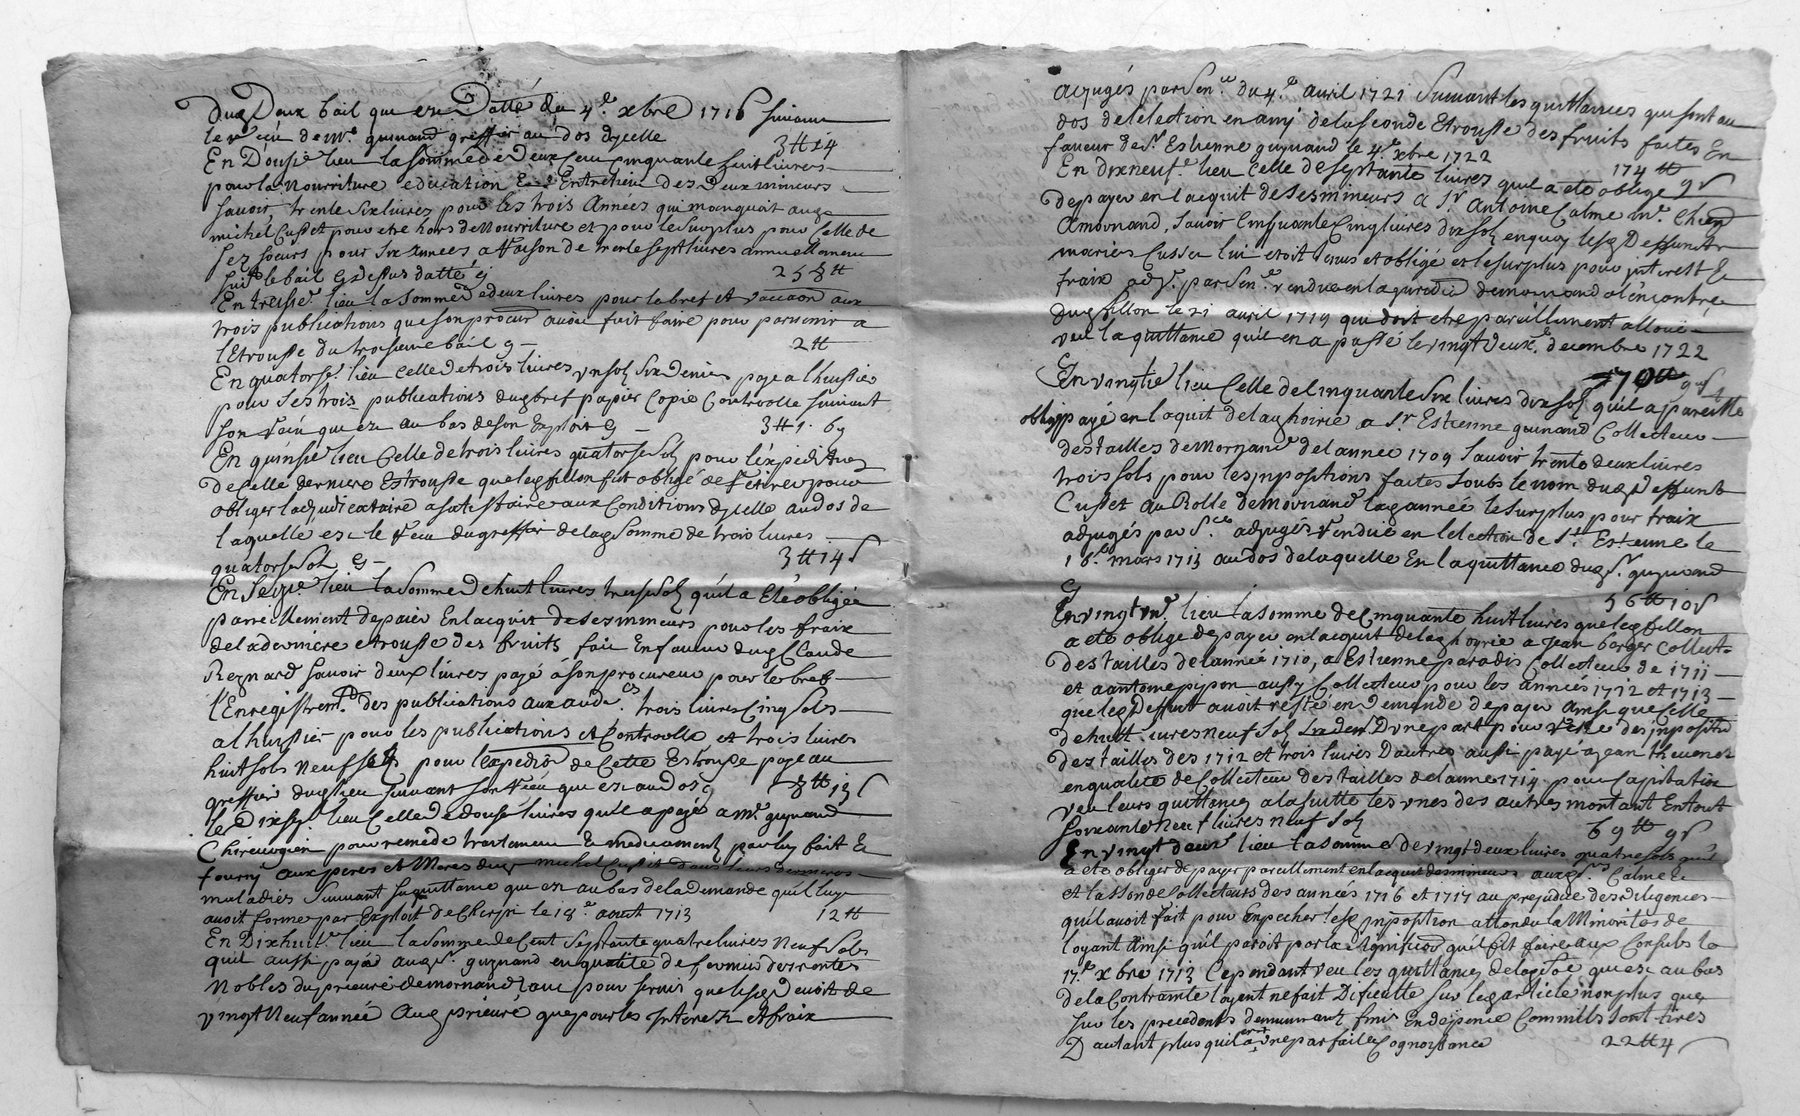 dug Deux bail que en Datté du 4e xbre 1716 suivant
le reçu de Me guinand greffier au dos dycelle
3 ₶ 14
En Dousie lieu la somme de deux Cent Cinquante huit livres
pour la nourriture education Et Entretien des Deux mineurs
savoir trente six livres pour les trois Annees qui manquoit aug
michel Cusset pour etre hors de Nourriture et pour le surplus pour Celle de
ses soeurs pour six années a Raison de trente sept livres annuellement
suivt le bail Cy dessus datté cy
258 ₶
En treise lieu la somme de deux livres pour le bref et vacaon aux
trois publications que son procur avoit fait faire pour parvenir a
l'Etrousse du troisieme bail cy
2 ₶
En quatorse lieu Celle de trois livres un sol six deniers paye a l'huissier
pour ses trois publications dug bref papier Copie Controolle suivant
son reçu que en au bas de son Exploit cy
3 ₶ 1. 6
En quinsie lieu Celle de trois livres quatorse sols pour l'expedition
de Celle derniere Estrousse que leg fillon fut obligé de retirer pour
obliger l'adjudicataire a satisffaire aux Conditions dycelle au dos de
laquelle est le reçu dug greffier de lag somme de trois livres
quatorse sols cy
3 ₶ 14 s
En Seizie lieu la somme de huit livres treise sols qu'il a Eté obligé
pareillement de paier En lacquit de ses mineurs pour les fraix
de la derniere etrousse des fruits fait En faveur dug Claude
Regnard savoir deux livres payé a son procureur pour le bref
l'Enregistremt des publications aux audces trois livres Cinq sols
al huissier pour les publications et Controolle et trois livres
huit sols neuf pour l'expedion de Cette Estrousse paye au
greffier dug lieu suivant son reçu que en au dos cy
8 ₶ 13 s
le Dixsep. lieu Celle de douse livres qu'il a payé a Mr guynand
Chirurgien pour remede traitement Et medicaments par luy fait Et
fourny aux peres et Meres dug michel Cusset dans leurs dernieres
maladies Suivant sa quittance que en au bas de la Demande qu'il luy
avoit formé par Exploit de Cherpi le 18e aout 1713
12 ₶
En Dixhuite lieu la somme de Cent Septante quatre livres neuf sols
quil aussi payéé augr. guynand en qualité de fermier des rentes
Nobles du prieuré de mornand, pour servis que lesg devoit de
vingt Neuf année Aug prieuré que pour les Interest Et fraix
adjugés par Sence du 4e avril 1721 Suivant les quittances qui sont au
dos de l'élection en amj de la seconde Etrousse des fruits faites En
faveur de Sr Estienne guynand le 4e xbre 1722
174 ₶ 9 s
En dix neufe lieu Celle de septante livres qu'il a été obligé
de payer en lacquit de ses mineurs a Sr Antoine Calme Me Chirn
A mornand, savoir Cinquante Cinq livres dix sols en quoy lesg Deffunt
mariés Cusset lui etoit tenus et obligé et le surplus pour interest Et
fraix adg. par Sence rendue en la juridicn de mornand a l'encontre
dug fillon le 21 avril 1719 qui doit etre pareillement alloué
veu la quittance qu'il en a passé le vingt deuxe decembre 1722
70 ₶ 9 s
En vingtie lieu Celle de cinquante six livres dix sols qu'il a pareillt
obligé payé en laquit de lag hoirie a Sr Estienne guinand Collecteur
des tailles de Mornand de l'année 1709 Savoir trente deux livres
trois sols pour les jnpositions faites soubs le nom dug Deffunt
Cusset au Rolle de Mornand lag année le surplus pour fraix
adjugés par Sce adjugés rendue en lelection de St Estienne le
16e mars 1713 au dos de laquelle En la quittance dug Sr guynand
cy
56 ₶ 10 s
En vingt une lieu la somme de Cinquante huit livres que leg fillon
a eté obligé de payer en lacquit de lag hoyrie a Jean berger Collectr
des tailles de l'année 1710, a Estienne paradis Collecteur de 1711
et a antoine pypon aussy Collecteur pour les années 1712 et 1713
que leg Deffunt avoit resté en Demande de payer Ainsi que Celle
de huit livres neuf sols D'une part pour reste des jnposition
des tailles des 1712 et trois livres D'autres aussi payé a Jean thevenet
en qualité de Collecteur des tailles de l'anne 1714 pour Capitation
veu leurs quittances a la suitte les unes des autres montant En tout
soixante Neuf livres neuf sols
69 ₶ 9 s
En vingt deux lieu la somme de vingt deux livres quatre sols qu'il
a eté obliger de payer pareillement en lacquit des mineurs auxg Srs Calme Et
et lassonde Collecteurs des années 1716 et 1717 au prejudice des diligences
qu'il avoit fait pour Enpecher lesg jnposition attendu la Minorites de
loyant Ainsi qu'il paroit par la signification qu'il fit faire aux Consuls le
17e xbre 1713 Cependant veu les quittances que en au bas
de la Contrainte loyent ne fait Dificulte sur leg article non plus que
sur les precedents En depence Commils sont tires
D'autant plus quil en a une parfaite Cognoissance
22 ₶ 4 s